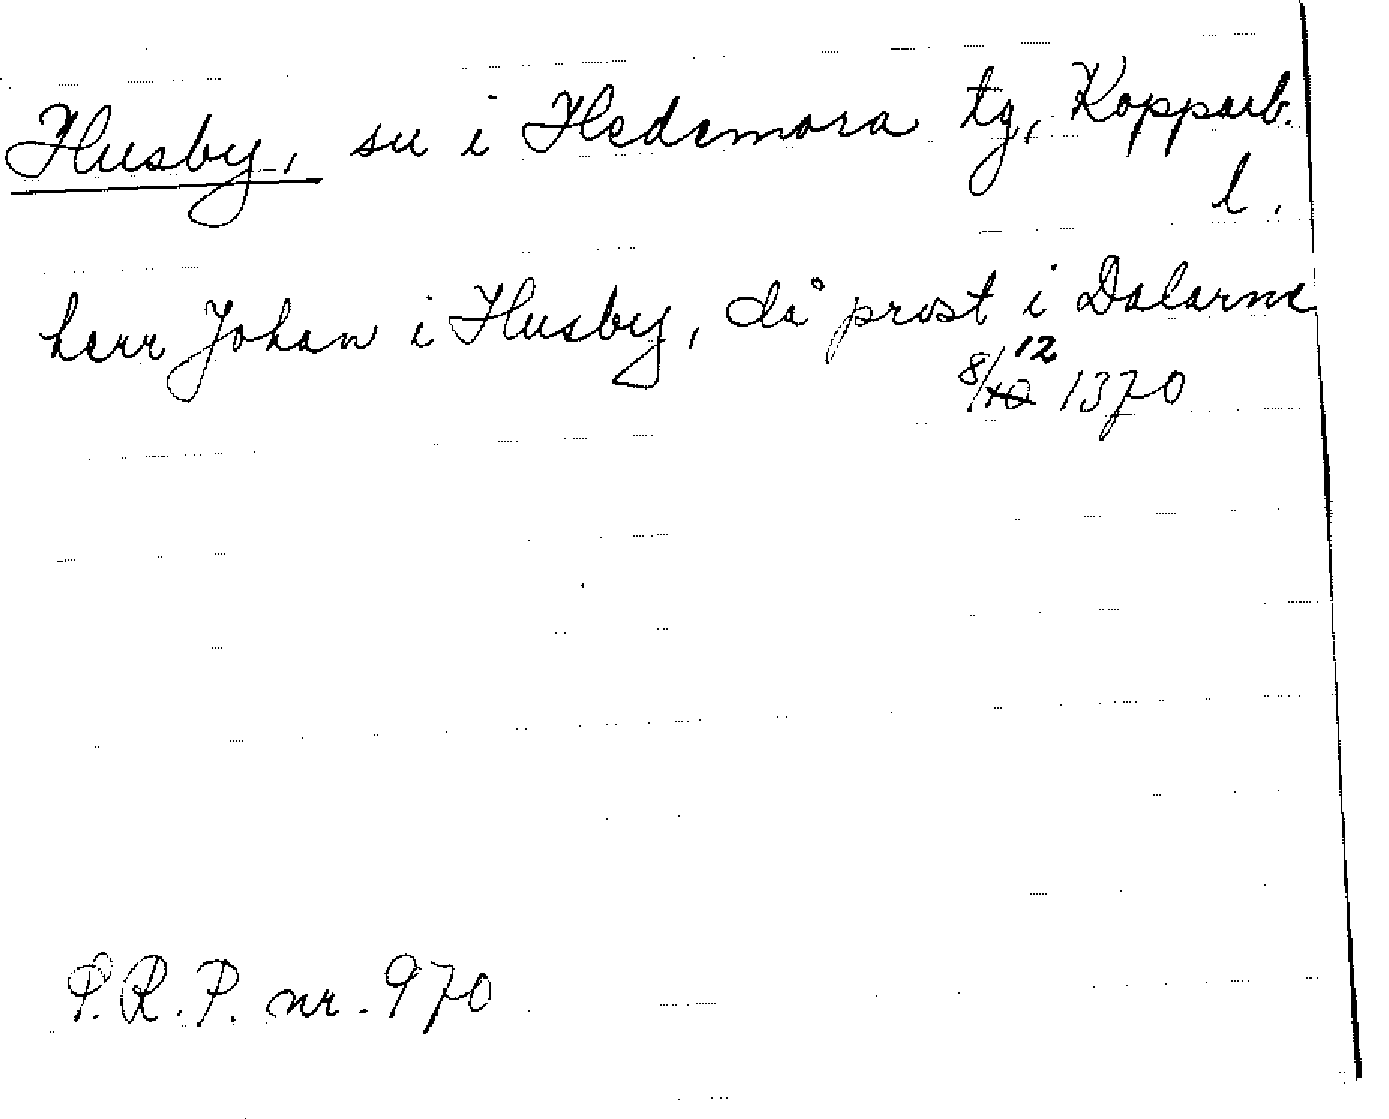 Husby, sn i Hedemora tg, Kopparb.
l.
herr Johan i Husby, då prost i Dalarne
12
8/10 1370
P.R.P. nr. 970